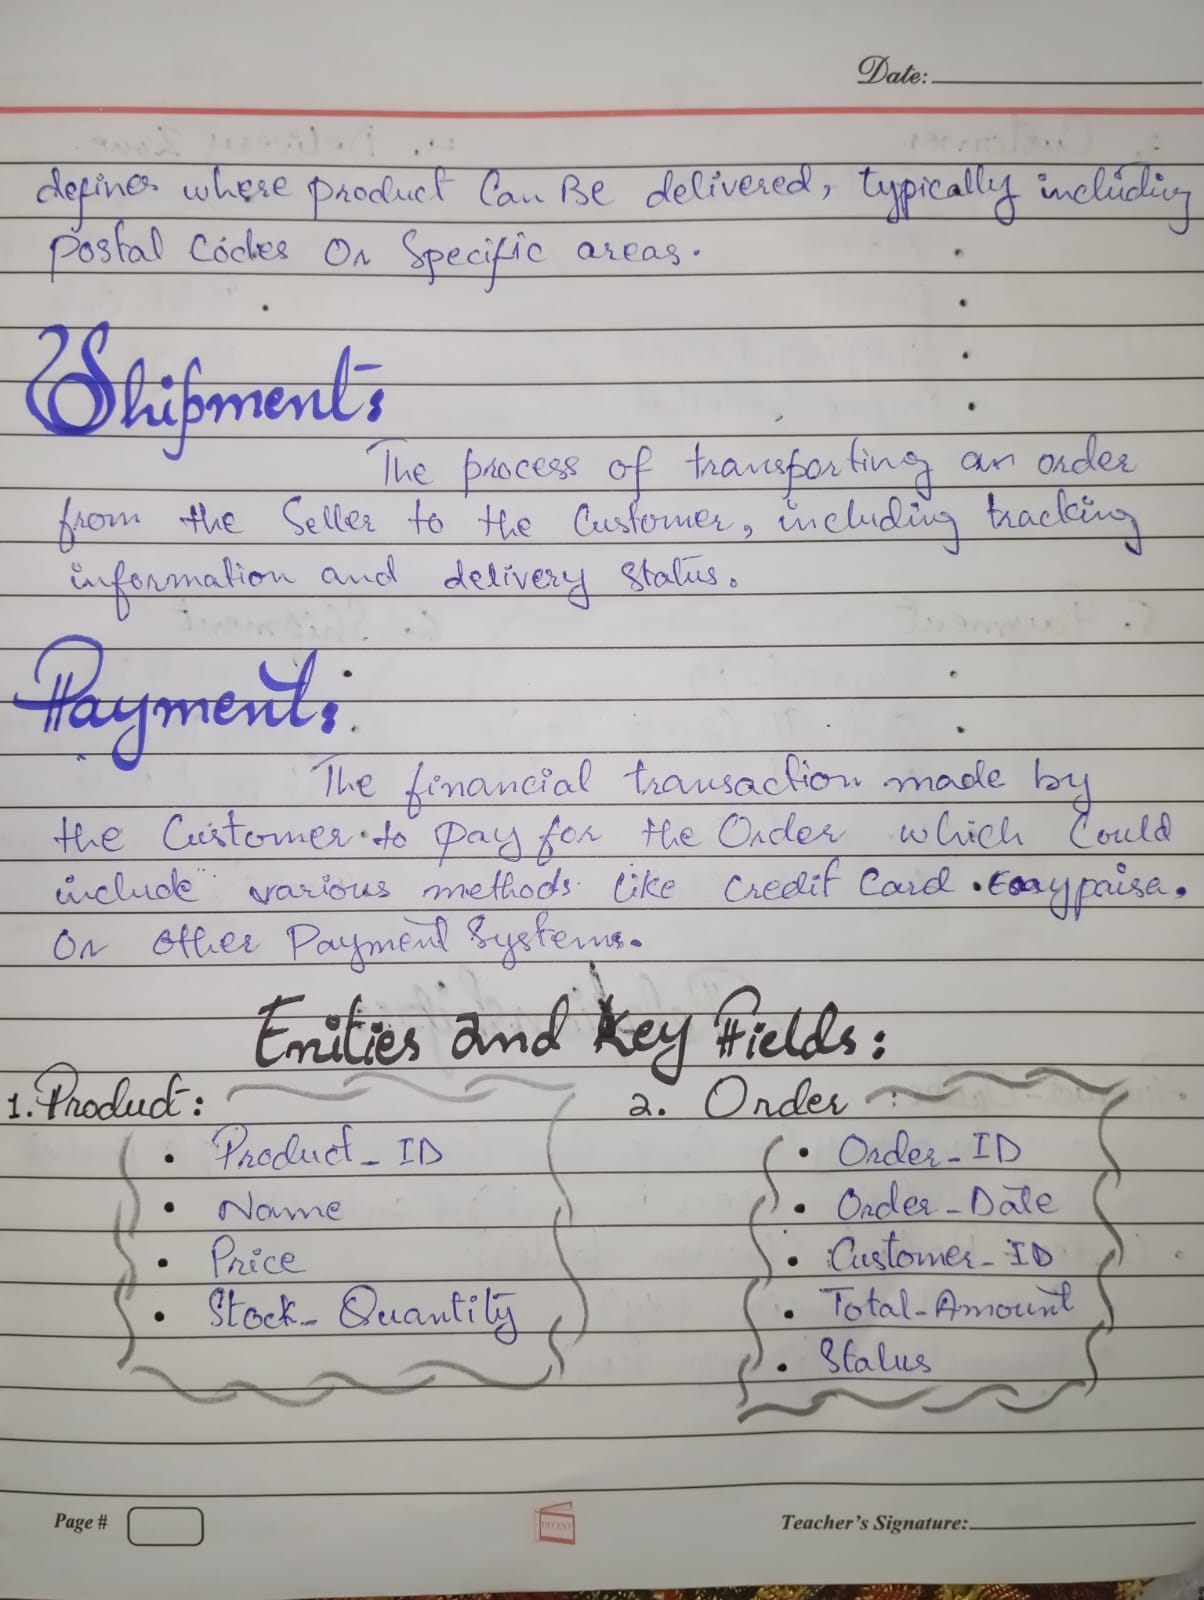 Date:
defines where product Can Be delivered, typically including
Postal Codes Or Specific areas.
Shipment:
The process of transporting an order
from the Seller to the Customer, including tracking
information and delivery Status.
Payment:
The financial transaction made by
the Customer to pay for the Order which Could
include various methods like Credit Card . Easypaisa.
Or other Payment Systems.
Enities and Key Fields:
1. Product:
• Product_ID
• Name
• Price
• Stock_Quantity
2. Order :
• Order_ID
• Order_Date
• Customer_ID
• Total_Amount
• Status
Page #
DECENT
Teacher's Signature: